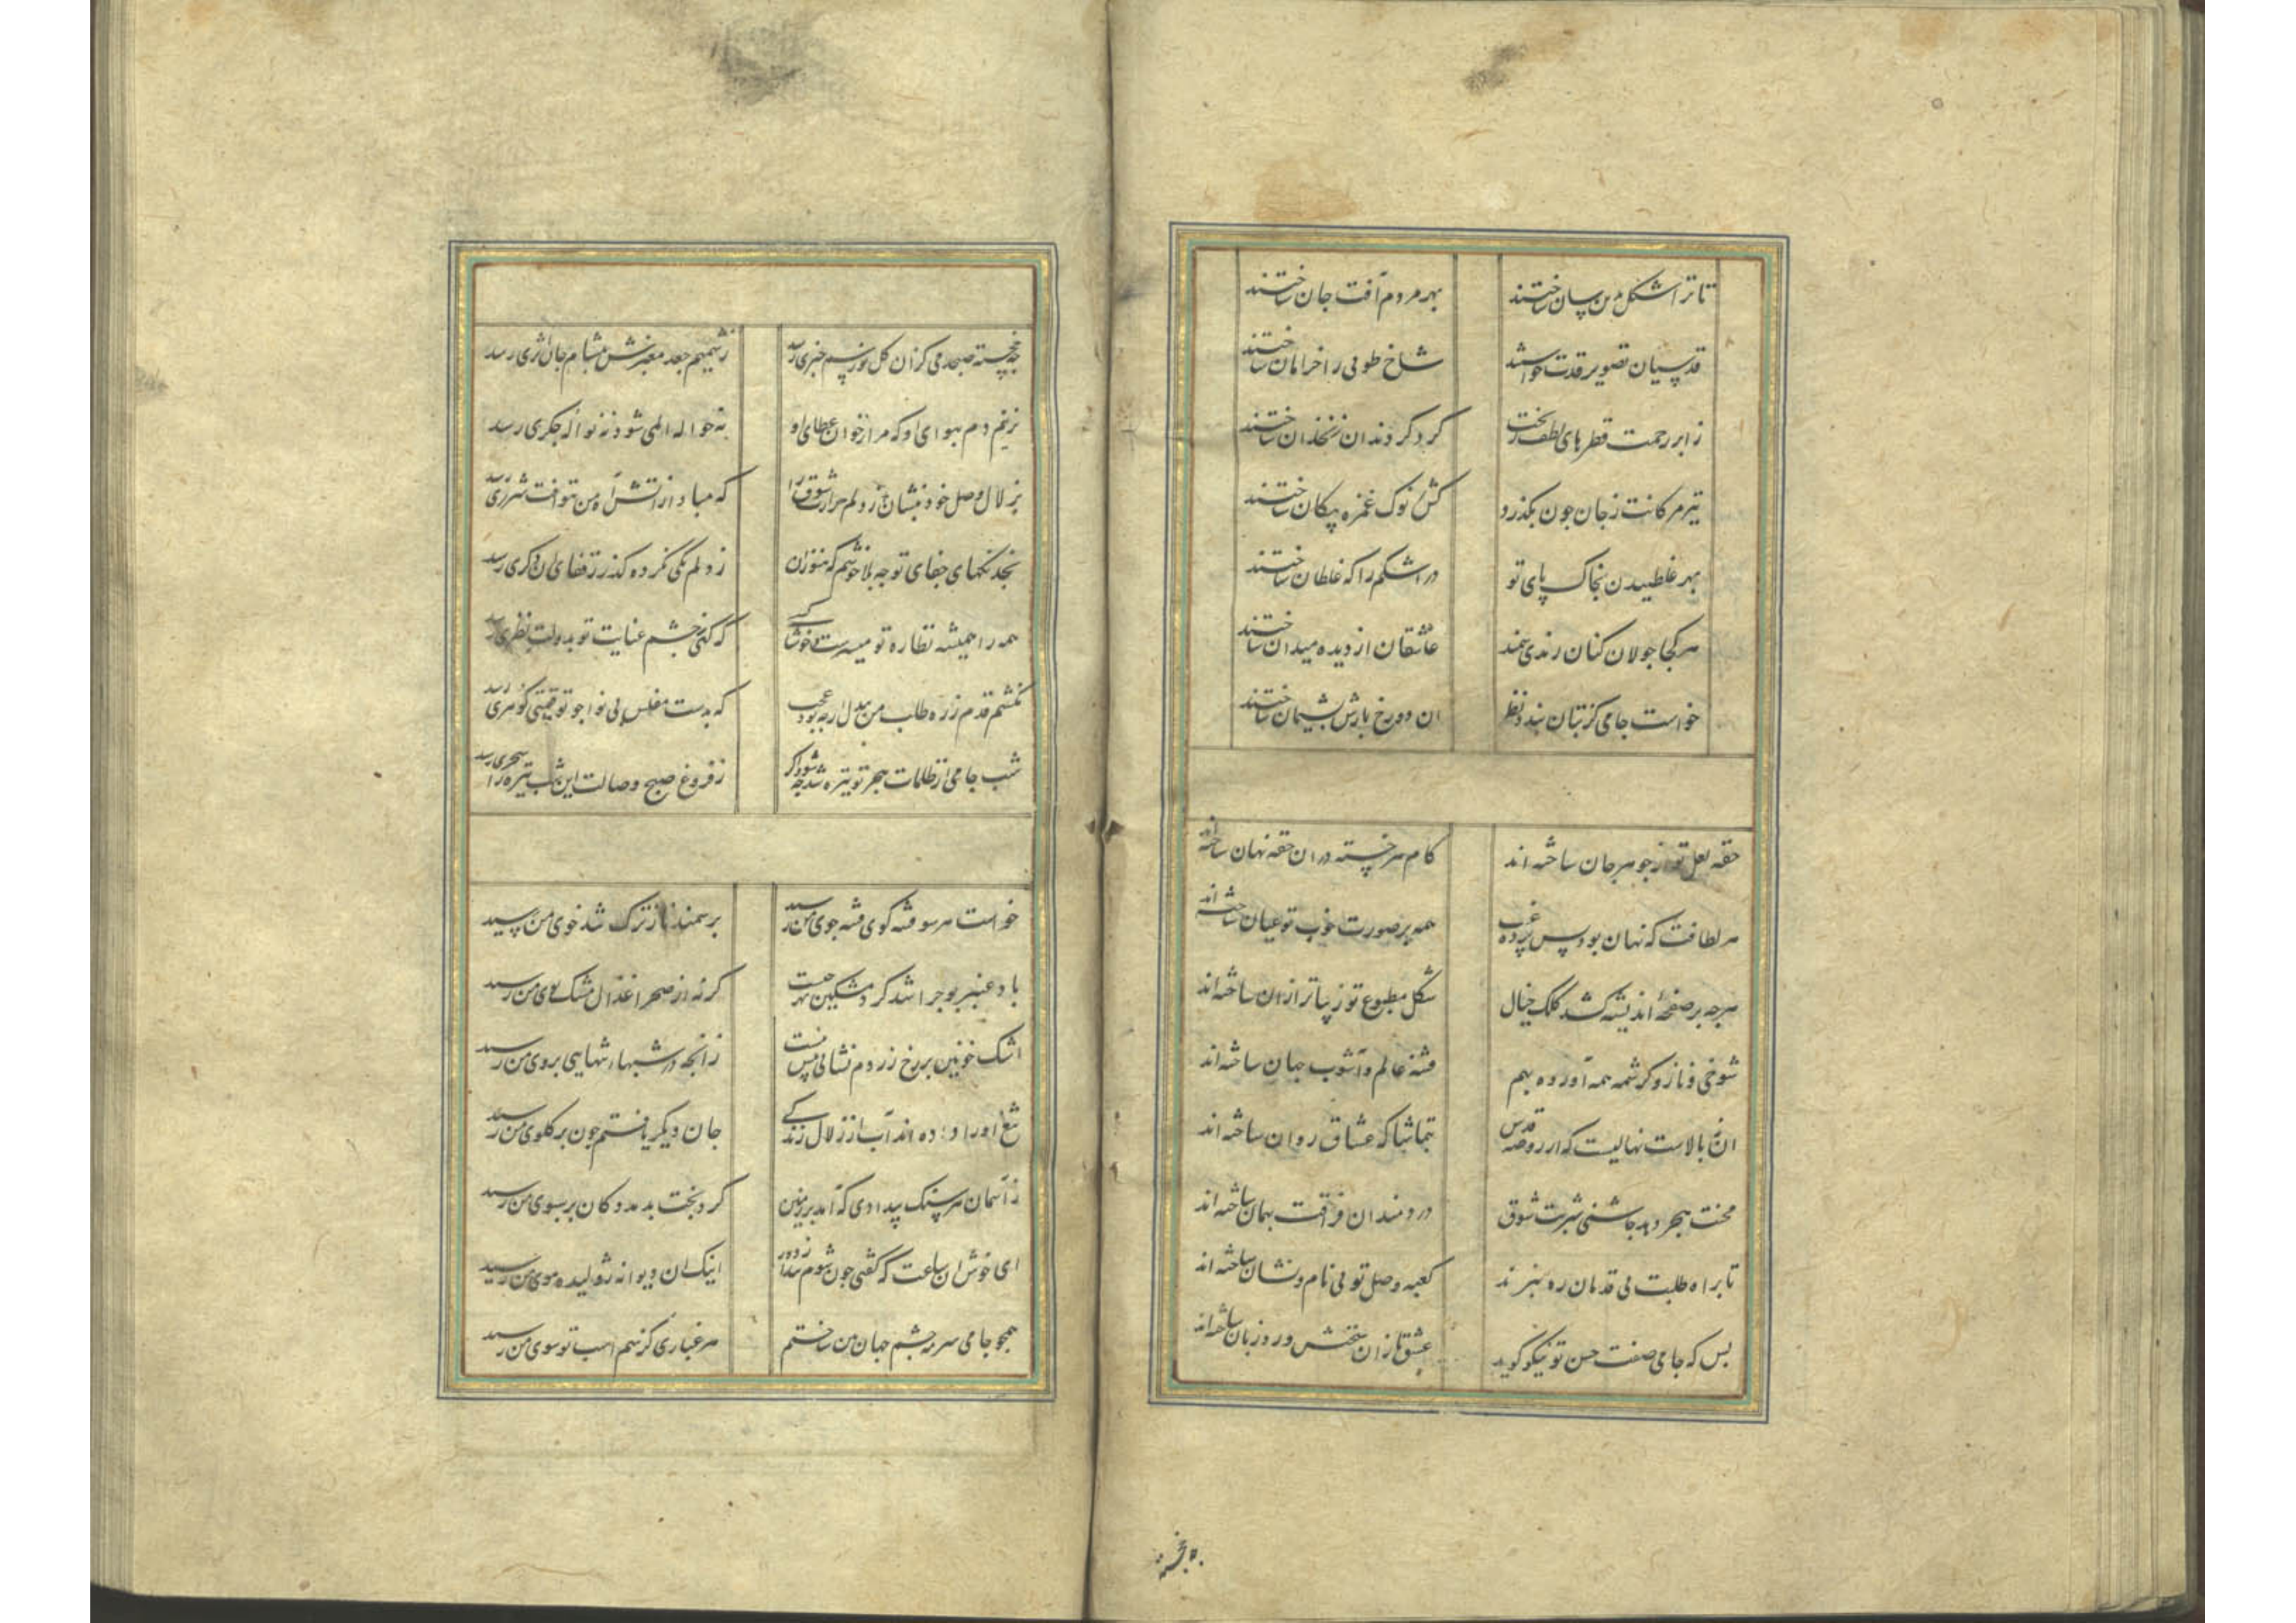 تا ترا شکل بدین سان ساختند بهر مردم آفت جان ساختند
قدسیان تصویر قدت خواستند شاخ طوبی را خرامان ساختند
ز ابر رحمت قطرهای لطف ریخت کرد کردند ان زنخدان ساختند
تیر مژکانت ز جان چون بکذرد کش ز نوک غمزه پیکان ساختند
بهر غلطیدن بخاک پای تو در اشکم را که غلطان ساختند
هر کجا جولان کنان راندی سمند عاشقان از دیده میدان ساختند
خواست جامی کز بتان بندد نظر ان دو رخ بازش پشیمان ساختند
حقه لعل تو از جوهر جان ساخته اند کام هر خسته دران حقه نهان ساخته اند
هر لطافت که نهان بود پس پرده غیب همه بر صورت خوب تو عیان ساخته اند
هرچه بر صفحهٔ اندیشه کشد کلک خیال شکل مطبوع تو زیباتر ازان ساخته اند
شوخی و ناز و کرشمه همه آورده بهم فتنه عالم و آشوب جهان ساخته اند
ان نه بالاست نهالیست که از روضه قدس تماشاکه عشاق روان ساخته اند
محنت هجر دهد چاشنی شربت شوق دردمندان فراقت بهمان ساخته اند
تا براه طلبت بی قدمان ره نبرند کعبه وصل تو بی نام و نشان ساخته اند
بس که جامی صفت حسن تو نیکو کوید عشق بازان سخنش ورد زبان ساخته اند
چه خجسته
چه خجسته صبحدمی کزان کل نورسم خبری رسد ز شمیم جعد معنبرش بمشام جان اثری رسد
نزنم دم بهوای او که مرا ز خوان عطای او نه حواله المی شود نه نواله جکری رسد
بزلال وصل خود نشان ز دلم حرارت شوق را که مباد از آتش آه من بتو آفت شرری رسد
بخدنکهای جفای تو چه بلا خوشم که هنوز ازان ز دلم یکی نکرده کذر ز قفای ان دکری رسد
همه را همیشه نظاره تو میسرست خوشا کسی که کهی ز چشم عنایت تو بدولت نظری رسد
نکشم قدم ز ره طلب من بیدل ار چه بود عجب که بدست مفلس بی نوا چو تو قیمتی کوهری رسد
شب جامی از ظلمات هجر تو تیره شد چه شود اکر ز فروغ صبح وصالت این شب تیره را سحری رسد
خواست هر سو فتنه کوی فتنه جوی من رسید بر سمند ناز ترک تندخوی من رسید
باد عنبر بو چرا شد کرد مشکین بهر چیست کرنه از صحرا غزال مشک بوی من رسید
اشک خونین بر رخ زردم نشانی بس منست زانچه در شبهای تنهایی بروی من رسید
تیغ او را داده اند آب از زلال زندکی جان دیکر یافتم چون بر کلوی من رسید
ز آسمان هر سنک بیدادی که آمد بر زمین کرد بخت بد مدد کان بر سبوی من رسید
ای خوش ان ساعت که کفتی چون شوم پیدا ز دور اینک ان دیوانه ژولیده موی من رسید
همچو جامی سرمه چشم جهان بین ساختم هر غباری کز سم اسب تو سوی من رسید